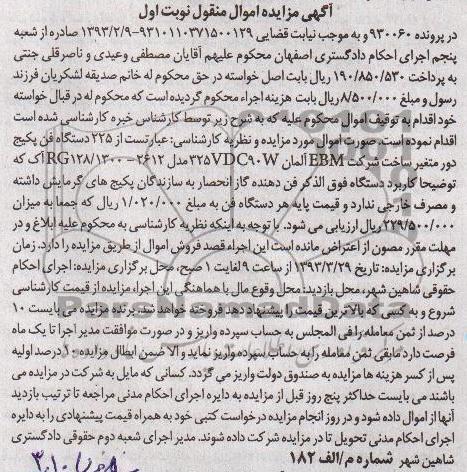 آگهی مزایده اموال منقول نوبت اول
در پرونده ۹۳۰۰۶۰ و به موجب نیابت قضایی ۹۳۱۰۱۱۰۳۷۱۵۰۰۱۳۹-۱۳۹۳/۲/۹ صادره از شعبه
پنجم اجرای احکام دادگستری اصفهان محکوم علیهم آقایان مصطفی وعیدی و ناصرقلی جنتی
به پرداخت ۱۹۰/۸۵۰/۵۳۰ ریال بابت اصل خواسته در حق محکوم له خانم صدیقه لشکریان فرزند
رسول و مبلغ ۸/۵۰۰/۰۰۰ ریال بابت هزینه اجراء محکوم گردیده است که محکوم له در قبال خواسته
خود اقدام به توقیف اموال محکوم علیه که به شرح زیر توسط کارشناس خبره کارشناسی شده است
اقدام نموده است. صورت اموال مورد مزایده و نظریه کارشناسی: عبارتست از ۲۲۵ دستگاه فن پکیج
دور متغیر ساخت شرکت EBM آلمان ۳۲۵VDC۹۰W مدل ۲۶۱۲-RG۱۲۸/۱۳۰۰ آک که
توضیحا کاربرد دستگاه فوق الذکر فن دهنده گاز انحصار به سازندگان پکیج های گرمایش داشته
و مصرف خارجی ندارد و قیمت پایه هر دستگاه فن به مبلغ ۱/۰۲۰/۰۰۰ ریال که جمعا به میزان
۲۲۹/۵۰۰/۰۰۰ ریال ارزیابی می شود. با توجه به اینکه نظریه کارشناسی به محکوم علیه ابلاغ و در
مهلت مقرر مصون از اعتراض مانده است این اجراء قصد فروش اموال از طریق مزایده را دارد. زمان
برگزاری مزایده: تاریخ ۱۳۹۳/۳/۲۹ از ساعت ۹ لغایت ۱۰ صبح، محل برگزاری مزایده: اجرای احکام
حقوقی شاهین شهر، محل بازدید: محل وقوع مال با هماهنگی این اجراء، مزایده از قیمت کارشناسی
شروع و به کسی که بالاترین قیمت را پیشنهاد دهد فروخته خواهد شد. برنده مزایده می بایست ۱۰
درصد از ثمن معامله را فی المجلس به حساب سپرده واریز و در صورت موافقت مدیر اجرا تا یک ماه
فرصت دارد مابقی ثمن معامله را به حساب سپرده واریز نماید و الا ضمن ابطال مزایده ۱۰ درصد اولیه
پس از کسر هزینه ها مزایده به صندوق دولت واریز می گردد. کسانی که مایل به شرکت در مزایده می
باشند می بایست حداکثر پنج روز قبل از مزایده به دایره اجرای احکام مدنی مراجعه تا ترتیب بازدید
آنها از اموال داده شود و در روز انجام مزایده درخواست کتبی خود به همراه قیمت پیشنهادی را به دایره
اجرای احکام مدنی تحویل تا در مزایده شرکت داده شوند. مدیر اجرای شعبه دوم حقوقی دادگستری
شاهین شهر شماره م/الف ۱۸۲
ParsNamadData